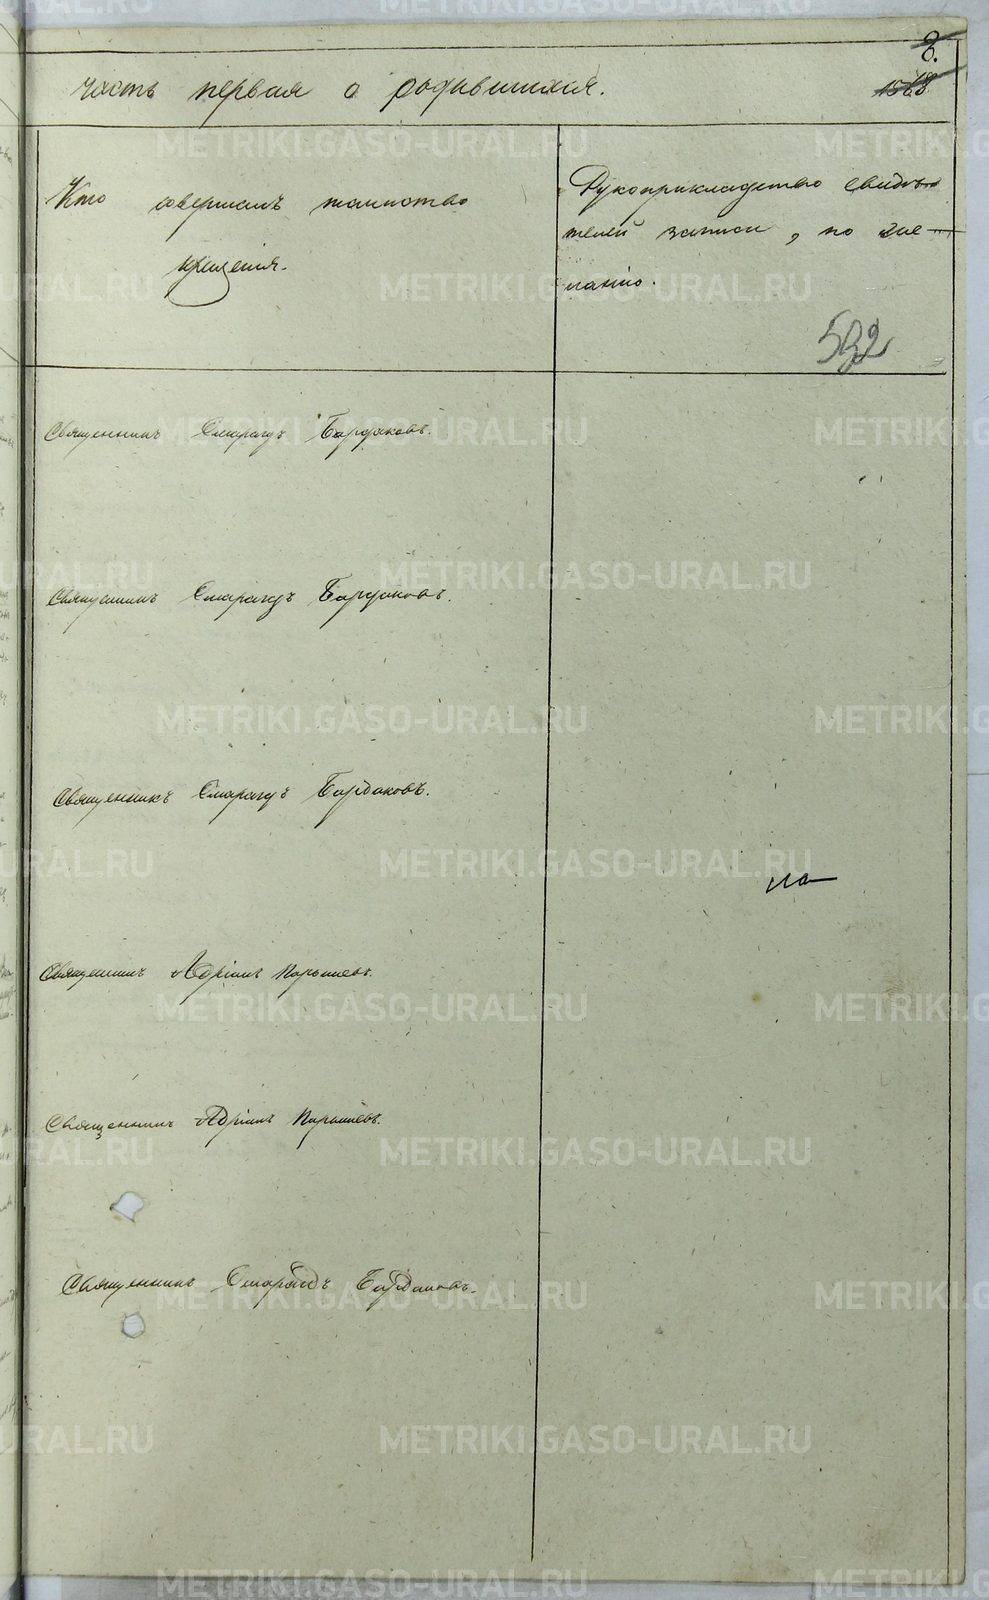 3.
часть первая о родившихся.
1568
Кто совершалъ таинство
крещенія.
Рукоприкладство свидѣ-
телей записи, по же-
ланію.
532
Священникъ Смарагдъ Бардаковъ.
Священникъ Смарагдъ Бардаковъ.
Священникъ Смарагдъ Бардаковъ.
Священникъ Адріанъ
Священникъ Адріанъ
Священникъ Смарагдъ Бардаковъ.
METRIKI.GASO-URAL.RU